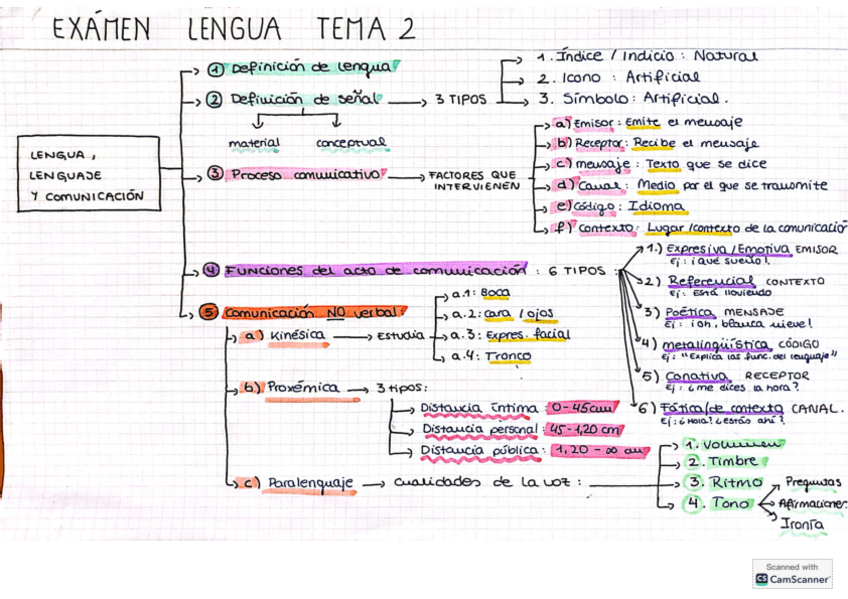 EXÁMEN LENGUA TEMA 2
LENGUA,
LENGUAJE
Y COMUNICACIÓN
① Definición de lengua
② Definición de señal → 3 TIPOS
material conceptual
1. Índice / Indicio : Natural
2. Icono : Artificial
3. Símbolo : Artificial.
③ Proceso comunicativo → FACTORES QUE
INTERVIENEN
a) Emisor : Emite el mensaje
b) Receptor : Recibe el mensaje
c) mensaje : Texto que se dice
d) Canal : Medio por el que se transmite
e) Código : Idioma
f) Contexto : Lugar / contexto de la comunicació
④ FUNCIONES del acto de comunicación : 6 TIPOS :
1.) Expresiva / Emotiva EMISOR
Ej : ¡qué sueño!
2) Referencial CONTEXTO
Ej : Está lloviendo
3) Poética MENSAJE
Ej : ¡oh, blanca nieve!
4) metalingüística CÓDIGO
Ej : "Explica las func. del lenguaje"
5) Conativa RECEPTOR
Ej : ¿me dices la hora?
6) Fática / de contexto CANAL.
Ej : ¿Hola? ¿estás ahí?
⑤ Comunicación NO verbal :
a) Kinésica → Estudia
a.1 : Boca
a.2 : cara / ojos
a.3 : Expres. facial
a.4 : Tronco
b) Proxémica → 3 tipos :
Distancia íntima : 0-45cm
Distancia personal : 45-1,20 cm
Distancia pública : 1,20 - ∞ cm
c) Paralenguaje → Cualidades de la voz :
1. Volumen
2. Timbre
3. Ritmo
4. Tono
Preguntas
Afirmaciones
Ironía
Scanned with
CS CamScanner